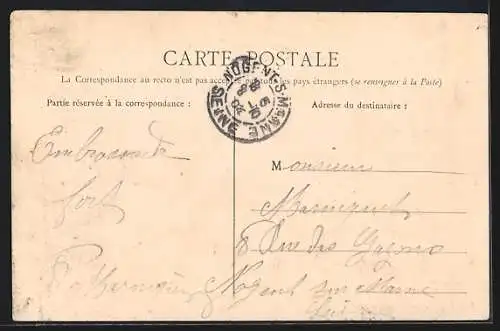 CARTE POSTALE
La Correspondance au recto n'est pas acceptée par tous les pays étrangers (se renseigner à la Poste)
Partie réservée à la correspondance :
Adresse du destinataire :
NOGENT-S-MARNE
SEINE
Embrassade
fort
Monsieur
8 Rue des
Nogent sur Marne